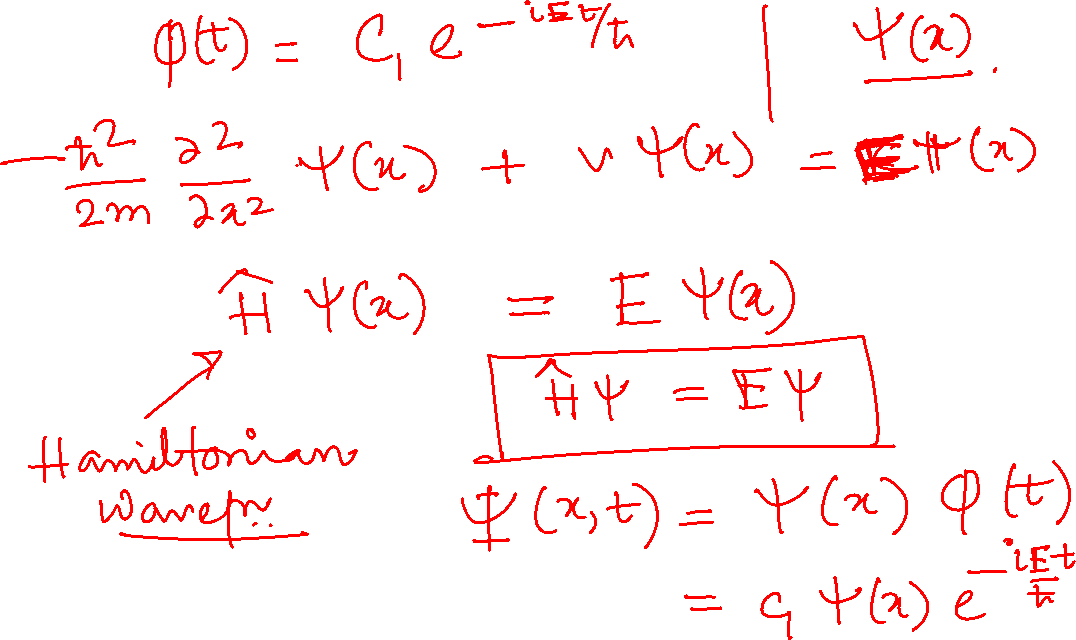 φ(t) = C₁ e^{-iEt/ħ} | Ψ(x).
-ħ²/2m ∂²/∂x² Ψ(x) + v Ψ(x) = EΨ(x)
Ĥ Ψ(x) = E Ψ(x)
ĤΨ = EΨ
Hamiltonian
Ψ(x,t) = Ψ(x) φ(t)
= C₁ Ψ(x) e^{-iEt/ħ}